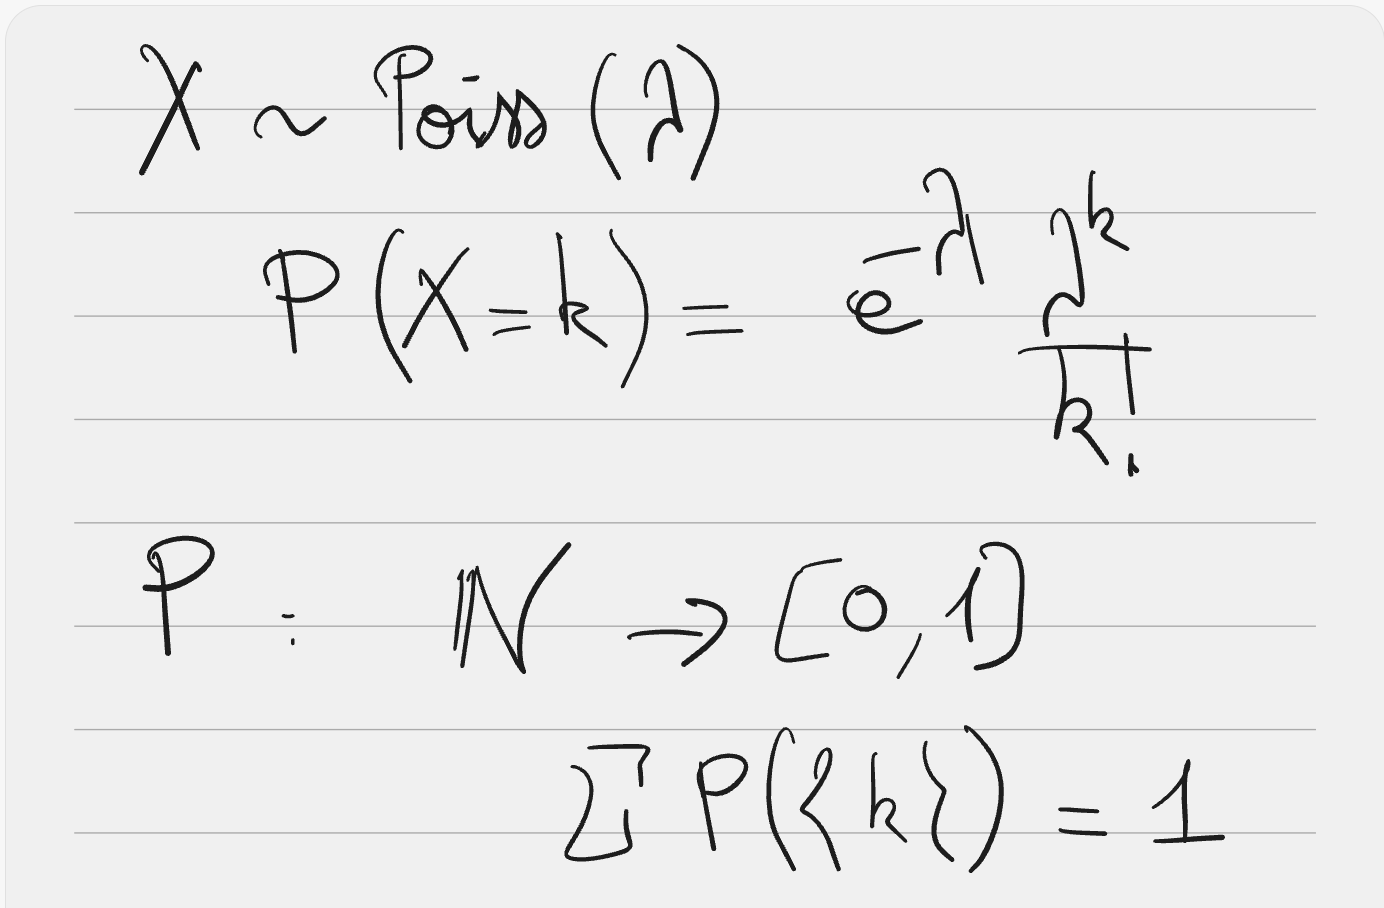 X ~ Poiss (λ)
P(X = k) = e^{-λ} \frac{λ^k}{k!}
P : ℕ → [0,1]
Σ P({k}) = 1